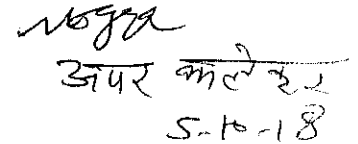 अपर कलेक्टर
5-10-18